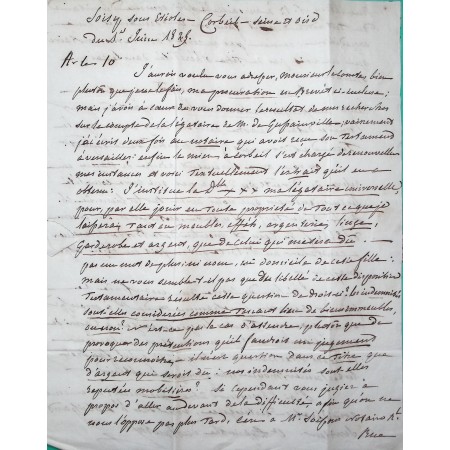 Soisy sous Etioles Corbeil Seine et Oise
du 1r Juin 1825.
J'aurois voulu vous adresser, monsieur le comte, bien
plutôt que je ne le fais, ma procuration en Brevet ci incluse;
mais j'avois à coeur de vous donner le resultat de mes recherches
sur le compte de la légataire de M. de ; vainement
j'ai écrit deux fois au notaire qui avoit reçu son Testament
à versailles: enfin le mien à Corbeil s'est chargé de renouveller
mes instances et voici Textuellement l'extrait qu'il en a
obtenu: J'institue la Dlle x x x ma légataire universelle,
pour, par elle jouir en toute propriété de tout ce que je
laisserai tant en meubles, effets, argenteries linge,
Garderobe et argent, que de celui qui me sera dû
pas un mot de plus; ni nom, ni domicile de cette fille:
mais ne vous semble-t-il pas que du libellé de cette disposition
Testamentaire resulte cette question de droit: les indemnités
sont elles considérées comme Tenant lieu de biens immeubles,
ou non? n'est-ce pas le cas d'attendre, plutôt que de
provoquer des prétentions qu'il faudroit un jugement
pour reconnoitre. il n'est question dans ce titre que
d'argent qui seroit dû: nos indemnités sont elles
reputées mobilières? Si cependant vous jugiez à
propos d'aller au devant de la difficulté, afin qu'on ne
nous l'oppose pas plus tard, à Mr notaire Rt.
Rue